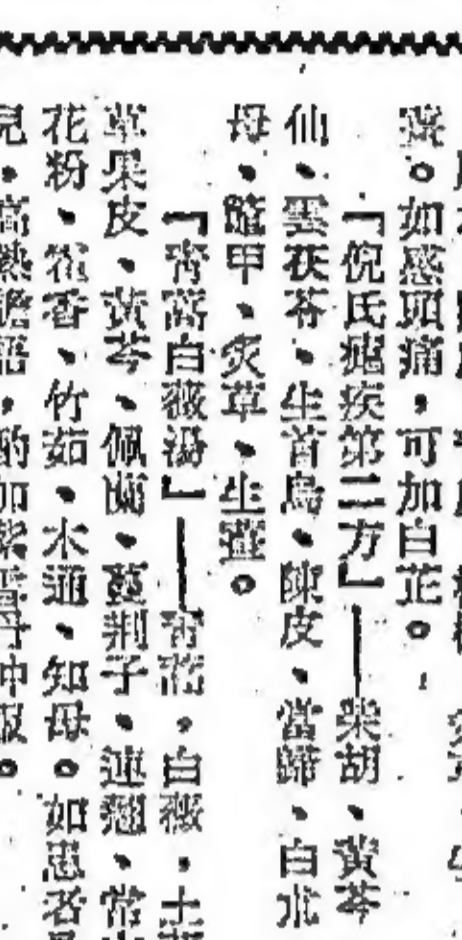 。如感頭痛，可加白芷。
「倪氏瘧疾第二方」——柴胡、黃芩
仙、雲茯苓、生首烏、陳皮、當歸、白朮
母、鱉甲、炙草、生薑。
「青蒿白薇湯」——青蒿，白薇，土
草果皮、黃芩、佩蘭、蔓荊子、連翹、常
花粉、藿香、竹茹、木通、知母。如患者
兒，高熱譫語，酌加紫雪丹冲服。